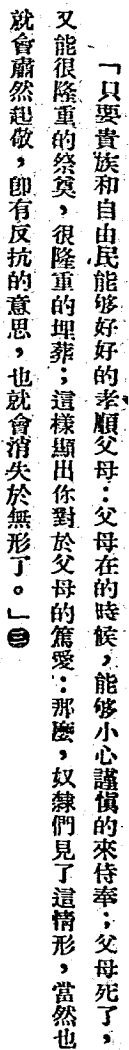 「只要貴族和自由民能够好好的孝順父母：父母在的時候，能够小心謹慎的來侍奉；父母死了，
又能很隆重的祭奠，很隆重的埋葬；這樣顯出你對於父母的篤愛：那麼，奴隸們見了這情形，當然也
就會肅然起敬，卽有反抗的意思，也就會消失於無形了。」㊂